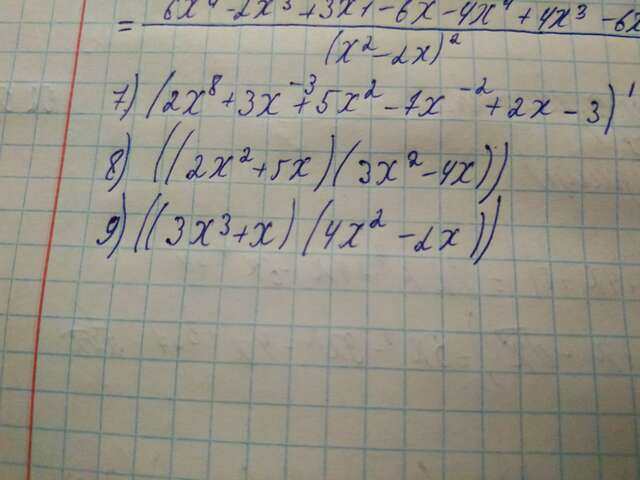 = 6x⁴ - 2x³ + 3x1 - 6x - 4x⁴ + 4x³ - 6x
(x² - 2x)²
7) (2x⁸ + 3x⁻³ + 5x² - 7x⁻² + 2x - 3)'
8) ((2x² + 5x)(3x² - 4x))
9) ((3x³ + x)(4x² - 2x))